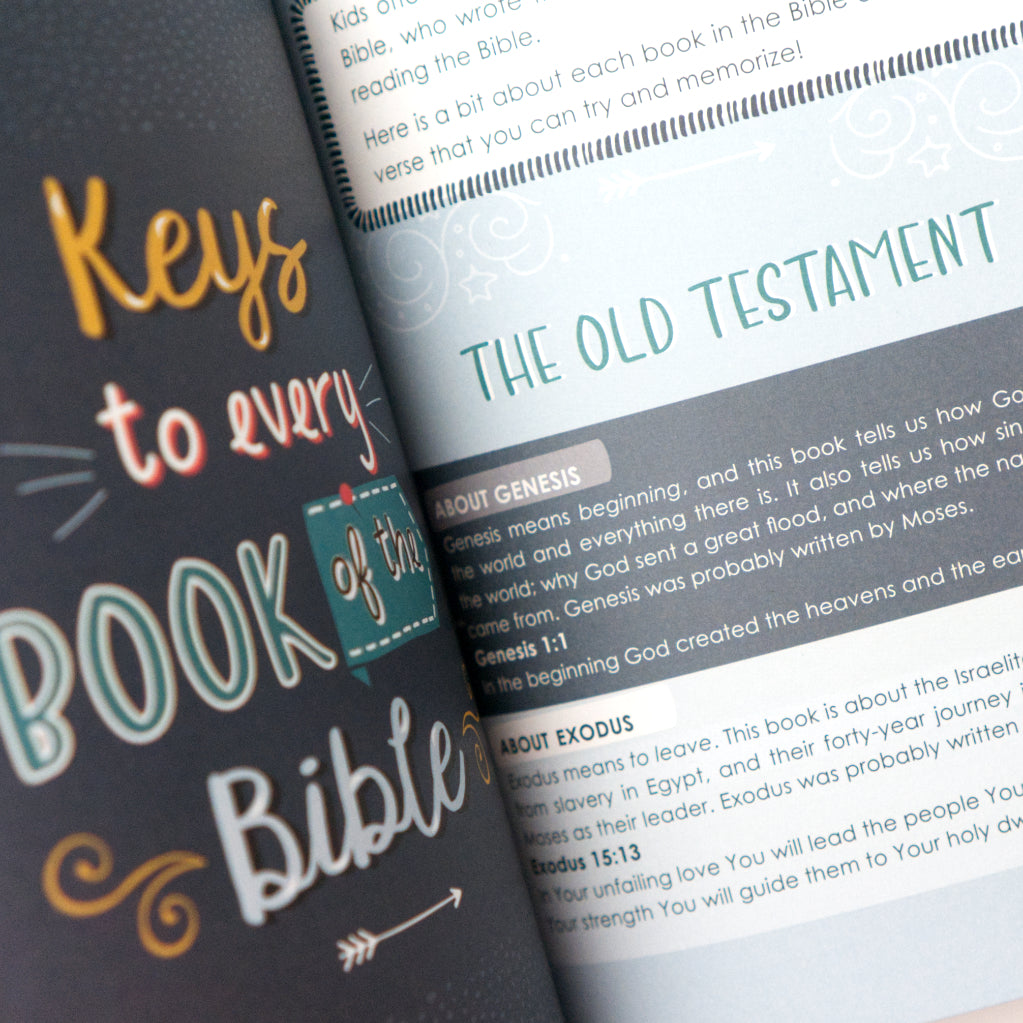 Keys
to every
BOOK of the
Bible
Kids
Bible, who wrote
reading the Bible.
Here is a bit about each book in the Bible
verse that you can try and memorize!
THE OLD TESTAMENT
ABOUT GENESIS
Genesis means beginning, and this book tells us how
the world and everything there is. It also tells us how
the world; why God sent a great flood, and where the
came from. Genesis was probably written by Moses.
Genesis 1:1
In the beginning God created the heavens and the
ABOUT EXODUS
Exodus means to leave. This book is about the
from slavery in Egypt, and their forty-year journey
Moses as their leader. Exodus was probably written
Exodus 15:13
In Your unfailing love You will lead the people
Your strength You will guide them to Your holy